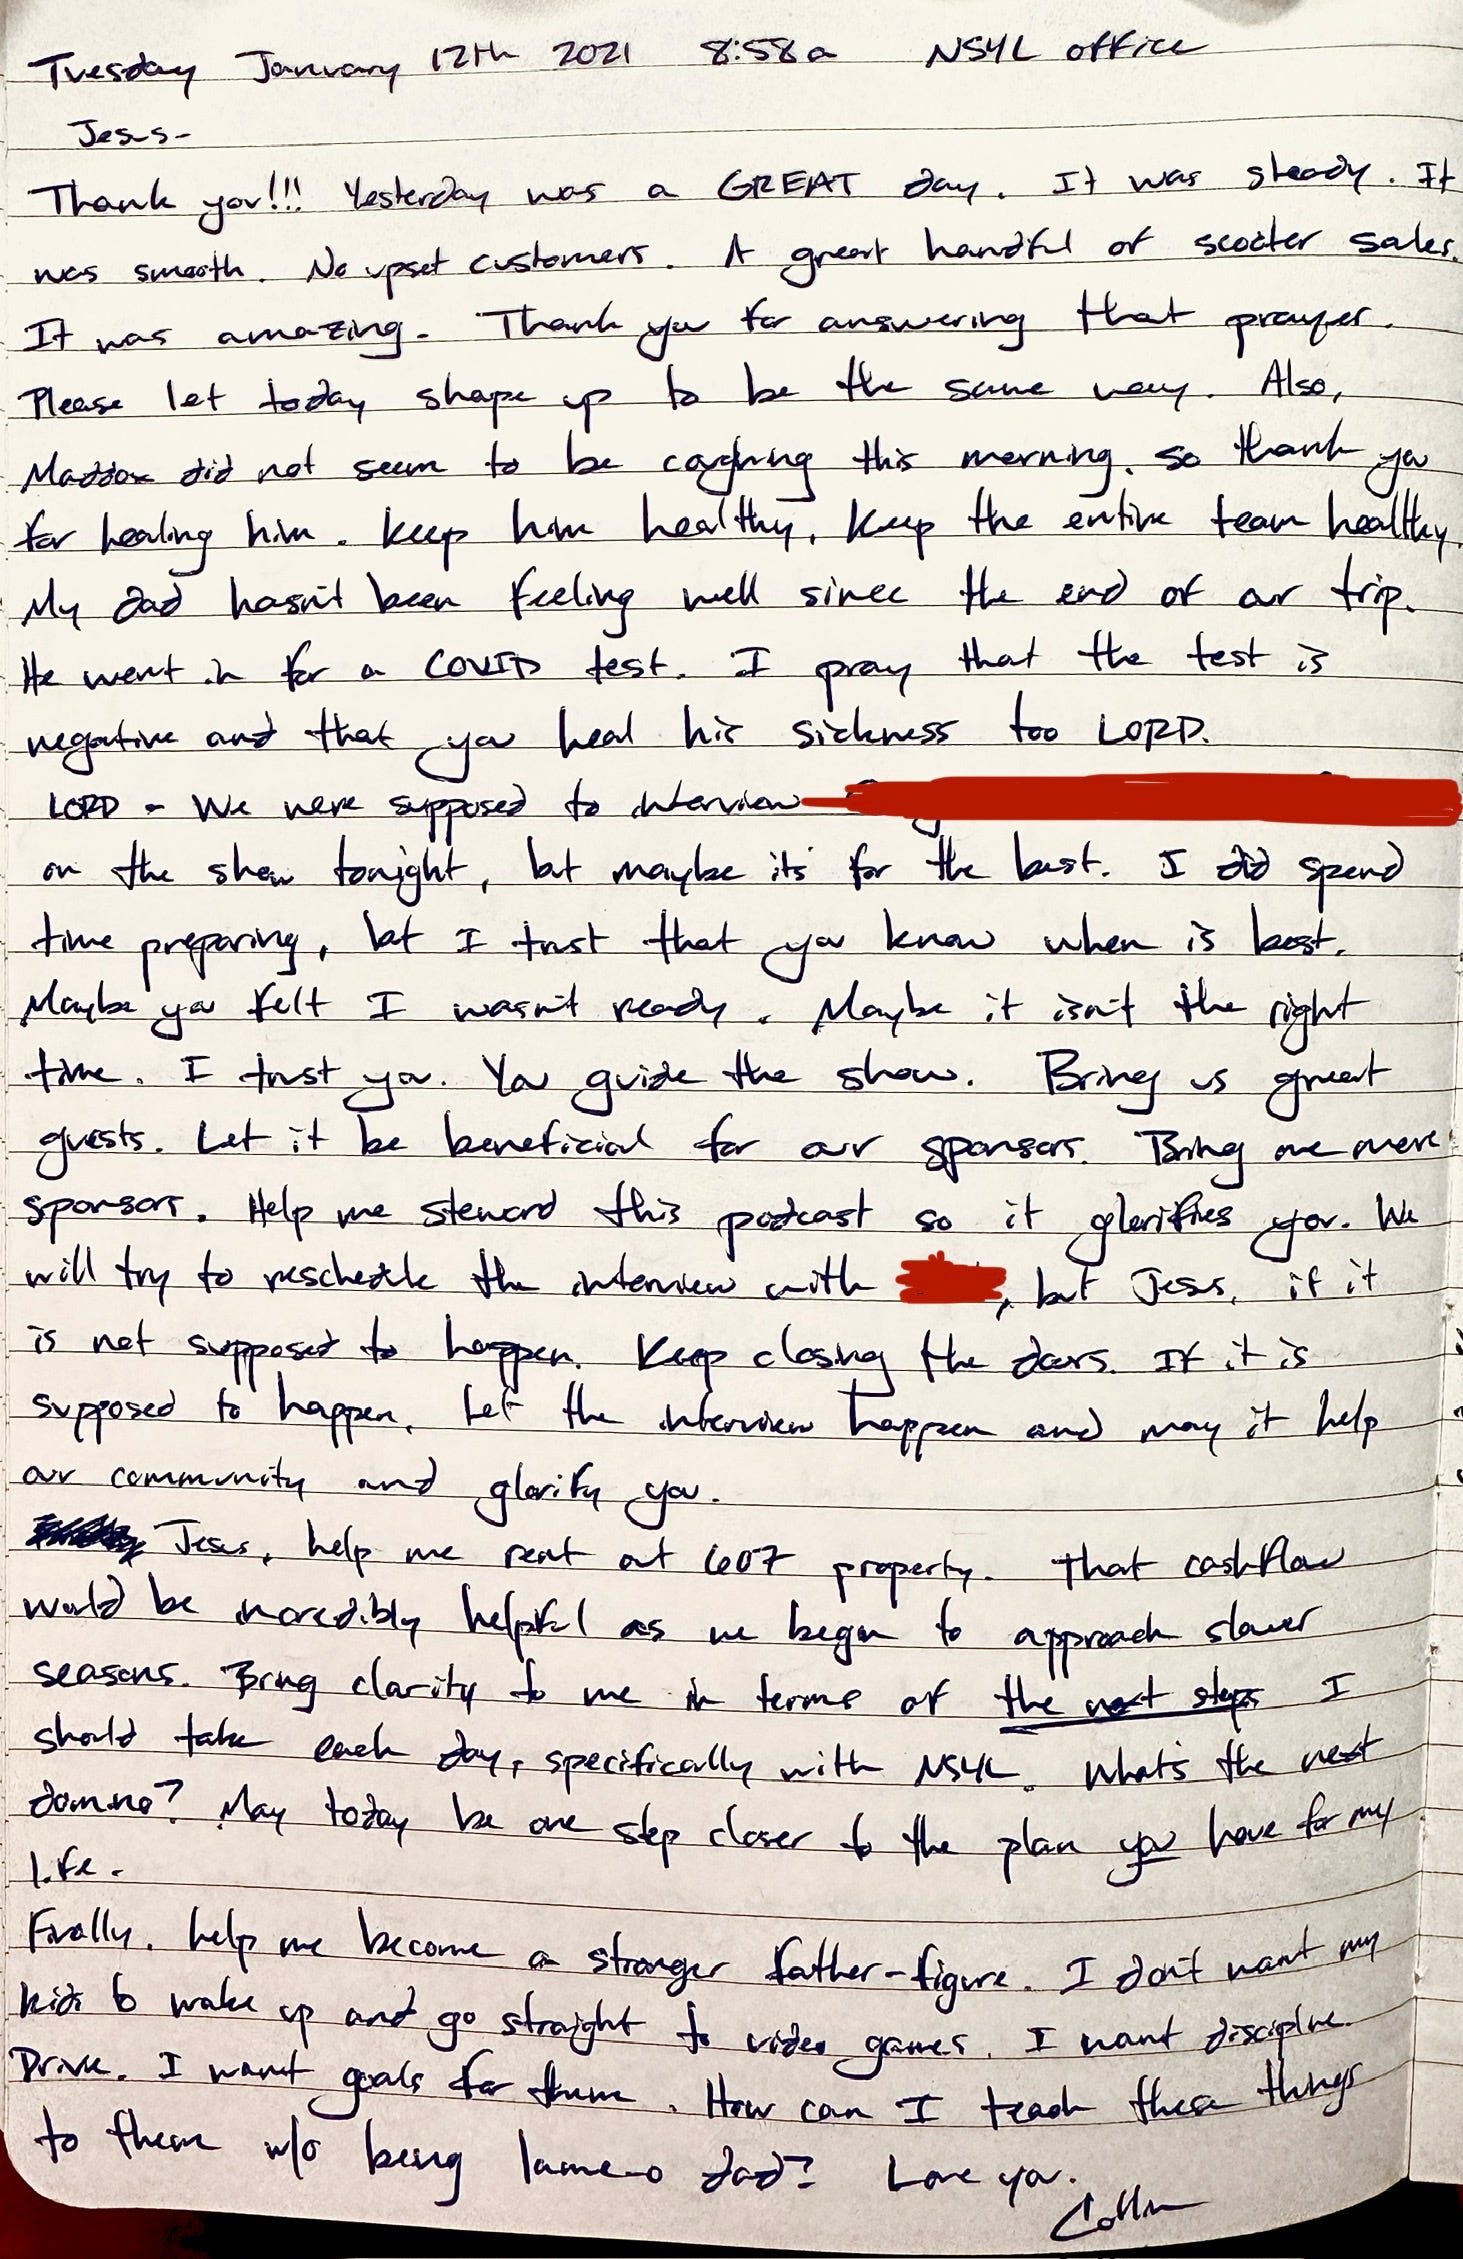 Tuesday January 12th 2021 8:58a NSYL office
Jesus-
Thank you!!! Yesterday was a GREAT day. It was steady. It
was smooth. No upset customers. A great handful of scooter sales.
It was amazing. Thank you for answering that prayer.
Please let today shape up to be the same way. Also,
Maddox did not seem to be coughing this morning. So thank you
for healing him. Keep him healthy. Keep the entire team healthy.
My dad hasn't been feeling well since the end of our trip.
He went in for a COVID test. I pray that the test is
negative and that you heal his sickness too LORD.
LORD - We were supposed to interview
on the show tonight, but maybe its for the best. I did spend
time preparing, but I trust that you know when is best.
Maybe you felt I wasn't ready. Maybe it isn't the right
time. I trust you. You guide the show. Bring us great
guests. Let it be beneficial for our sponsors. Bring me more
sponsors. Help me steward this podcast so it glorifies you. We
will try to reschedule the interview with , but Jesus, if it
is not supposed to happen. Keep closing the doors. If it is
supposed to happen, Let the interview happen and may it help
our community and glorify you.
Jesus, help me rent out 607 property. That cashflow
would be incredibly helpful as we begin to approach slower
seasons. Bring clarity to me in terms of the next steps I
should take each day, specifically with NSYL. What's the next
domino? May today be one step closer to the plan you have for my
life.
Finally, help me become a stronger father-figure. I don't want my
kids to wake up and go straight to video games. I want discipline.
Drive. I want goals for them. How can I teach these things
to them w/o being lame-o dad? Love you.
Collin